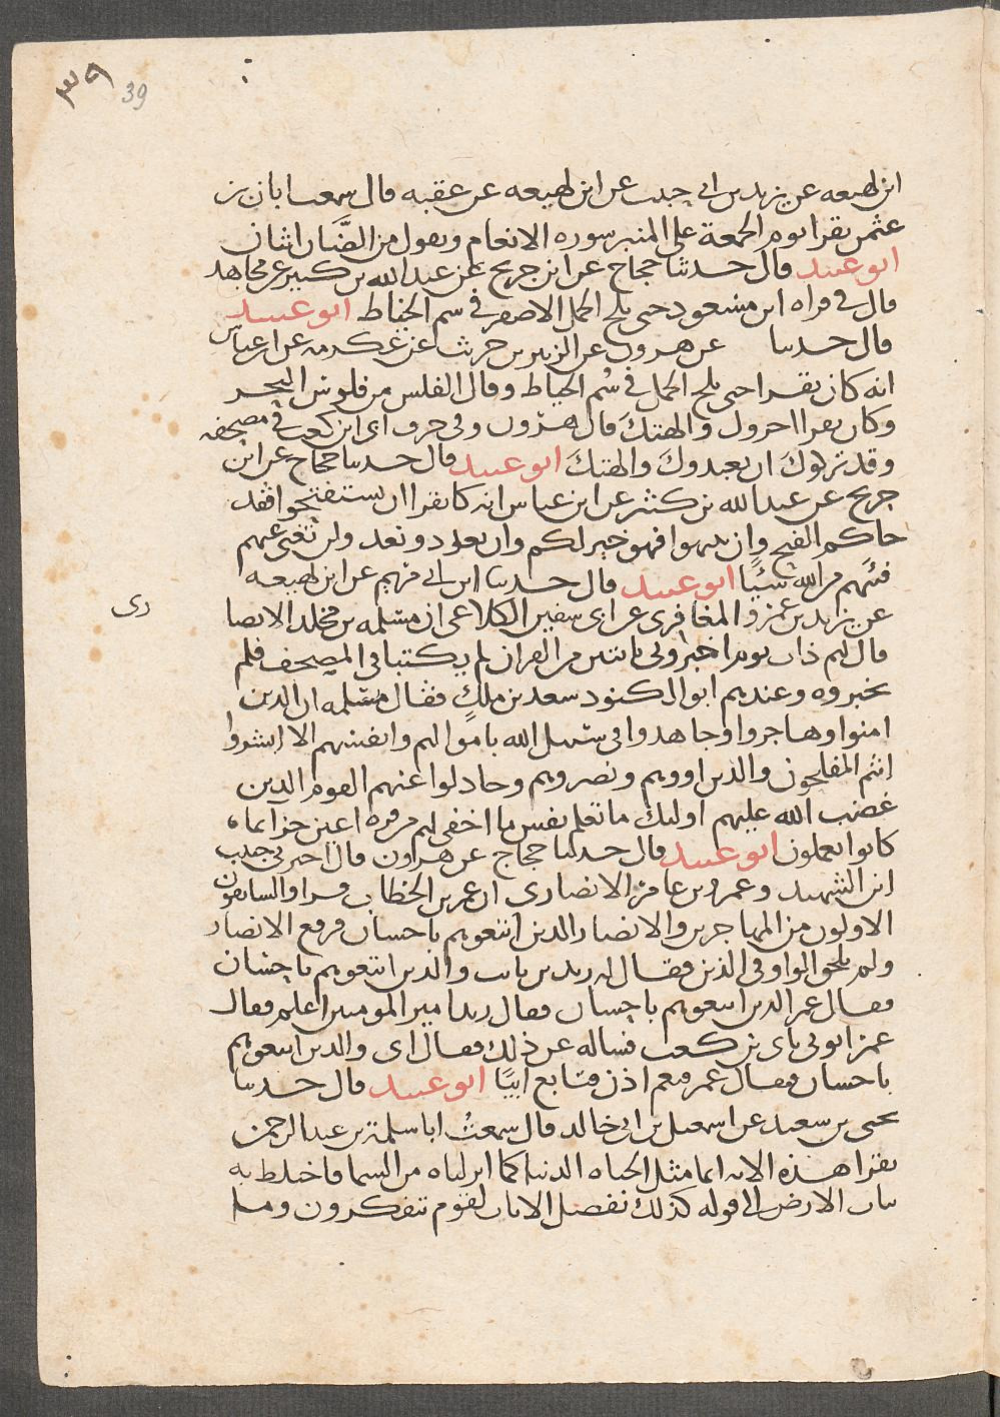 ٣٩ 39
ابن لهيعه عن يزيد بن ابي حبيب عن ابن لهيعه عن عقبه قال سمعت ابان بن
عثمن يقرا يوم الجمعة على المنبر سوره الانعام ويقول من الضَّان اثنان
ابو عبيد قال حدثنا حجاج عن ابن جريج عن عبد الله بن كبير عن مجاهد
قال في قراه ابن مسعود حتى يلج الجمل الاصفر في سم الخياط ابو عبيد
قال حدثنا عن هرون عن الزبير بن خريث عن عكرمه عن ابن عباس
انه كان يقرا حتى يلج الجمل في سُم الخياط وقال الفلس من فلوس البحر
وكان يقرا احرول والهتك قال هرون وفي حرف ابي ابن كعب في مصحفه
وقد تركوك ان يعبدوك والهتك ابو عبيد قال حدثنا حجاج عن ابن
جريج عن عبد الله بن كثير عن ابن عباس انه كا يقرا ان تستفتحوا فقد
جاكم الفتح وان تنتهوا فهو خير لكم وان تعودو نعد ولن تغني عنهم
فئتهم من الله شيًا ابو عبيد قال حدثنا ابن ابي مريم عن ابن لهيعه
عن يزيد بن عمرو المغافري عن ابي سفين الكلاعي ان مسلمه بن مخلد الانصا
رى
قال لهم ذات يوم اخبروني بايتين من القران لم يكتبا في المصحف فلم
يخبروه وعندهم ابو الكنود سعد بن ملكٍ فقال مسلمه ان الدين
امنوا وهاجروا وجاهدوا في سبيل الله باموالهم وانفسهم الا ابشروا
انتم المفلحون والذين اووهم ونصروهم وجادلوا عنهم القوم الدين
غضب الله عليهم اوليك ما تعلم نفس ما اخفى لهم من قره اعين جزآ بما
كانوا يعملون ابو عبيد قال حدثنا حجاج عن هرون قال اخبرني حبيب
ابن الشهيد وعمرو بن عامر الانصارى ان عمر بن الخطاب قرا والسابقون
الاولون من المهاجرين والانصار الدين اتبعوهم باحسان فرفع الانصار
ولم يلحق الواو في الذين فقال له زيد بن ثابت والدين اتبعوهم باحسان
فقال عمر الدين اتبعوهم باحسان فقال زيد امير المومنين اعلم فقال
عمر ايتوني بابي بن كعب فساله عن ذلك فقال ابي والدين اتبعوهم
باحسان فقال عمر فنعم اذن فتابع ابيًا ابو عبيد قال حدثنا
يحيى بن سعيد عن اسمعيل بن ابي خالد قال سمعتُ ابا سلمة بن عبد الرحمن
يقرا هذه الايه انما مثل الحياه الدنيا كما انزلناه من السما فاختلط به
نبات الارض الى قوله كذلك نفصل الايات لقوم تتفكرون وما